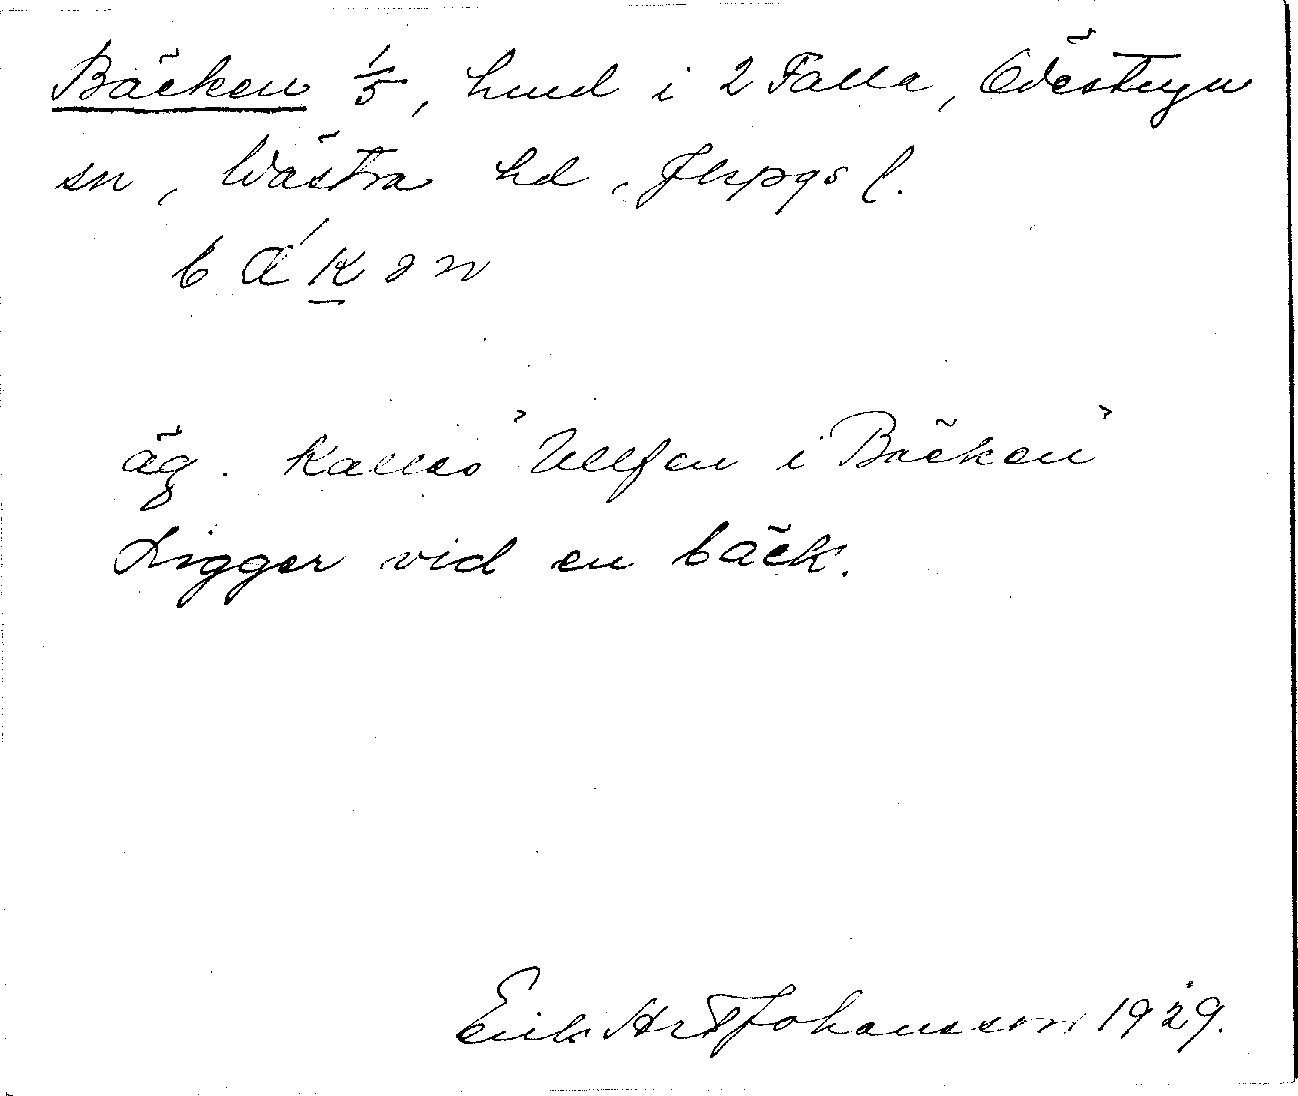 Bäcken 1/5, hmd i 2 Falla, Ödestugu
sn, Västra hd, Jkpgs l.
bäkən
äg. kallas "Ulfen i Bäcken"
Ligger vid en bäck.
Erik Johansson 1929.